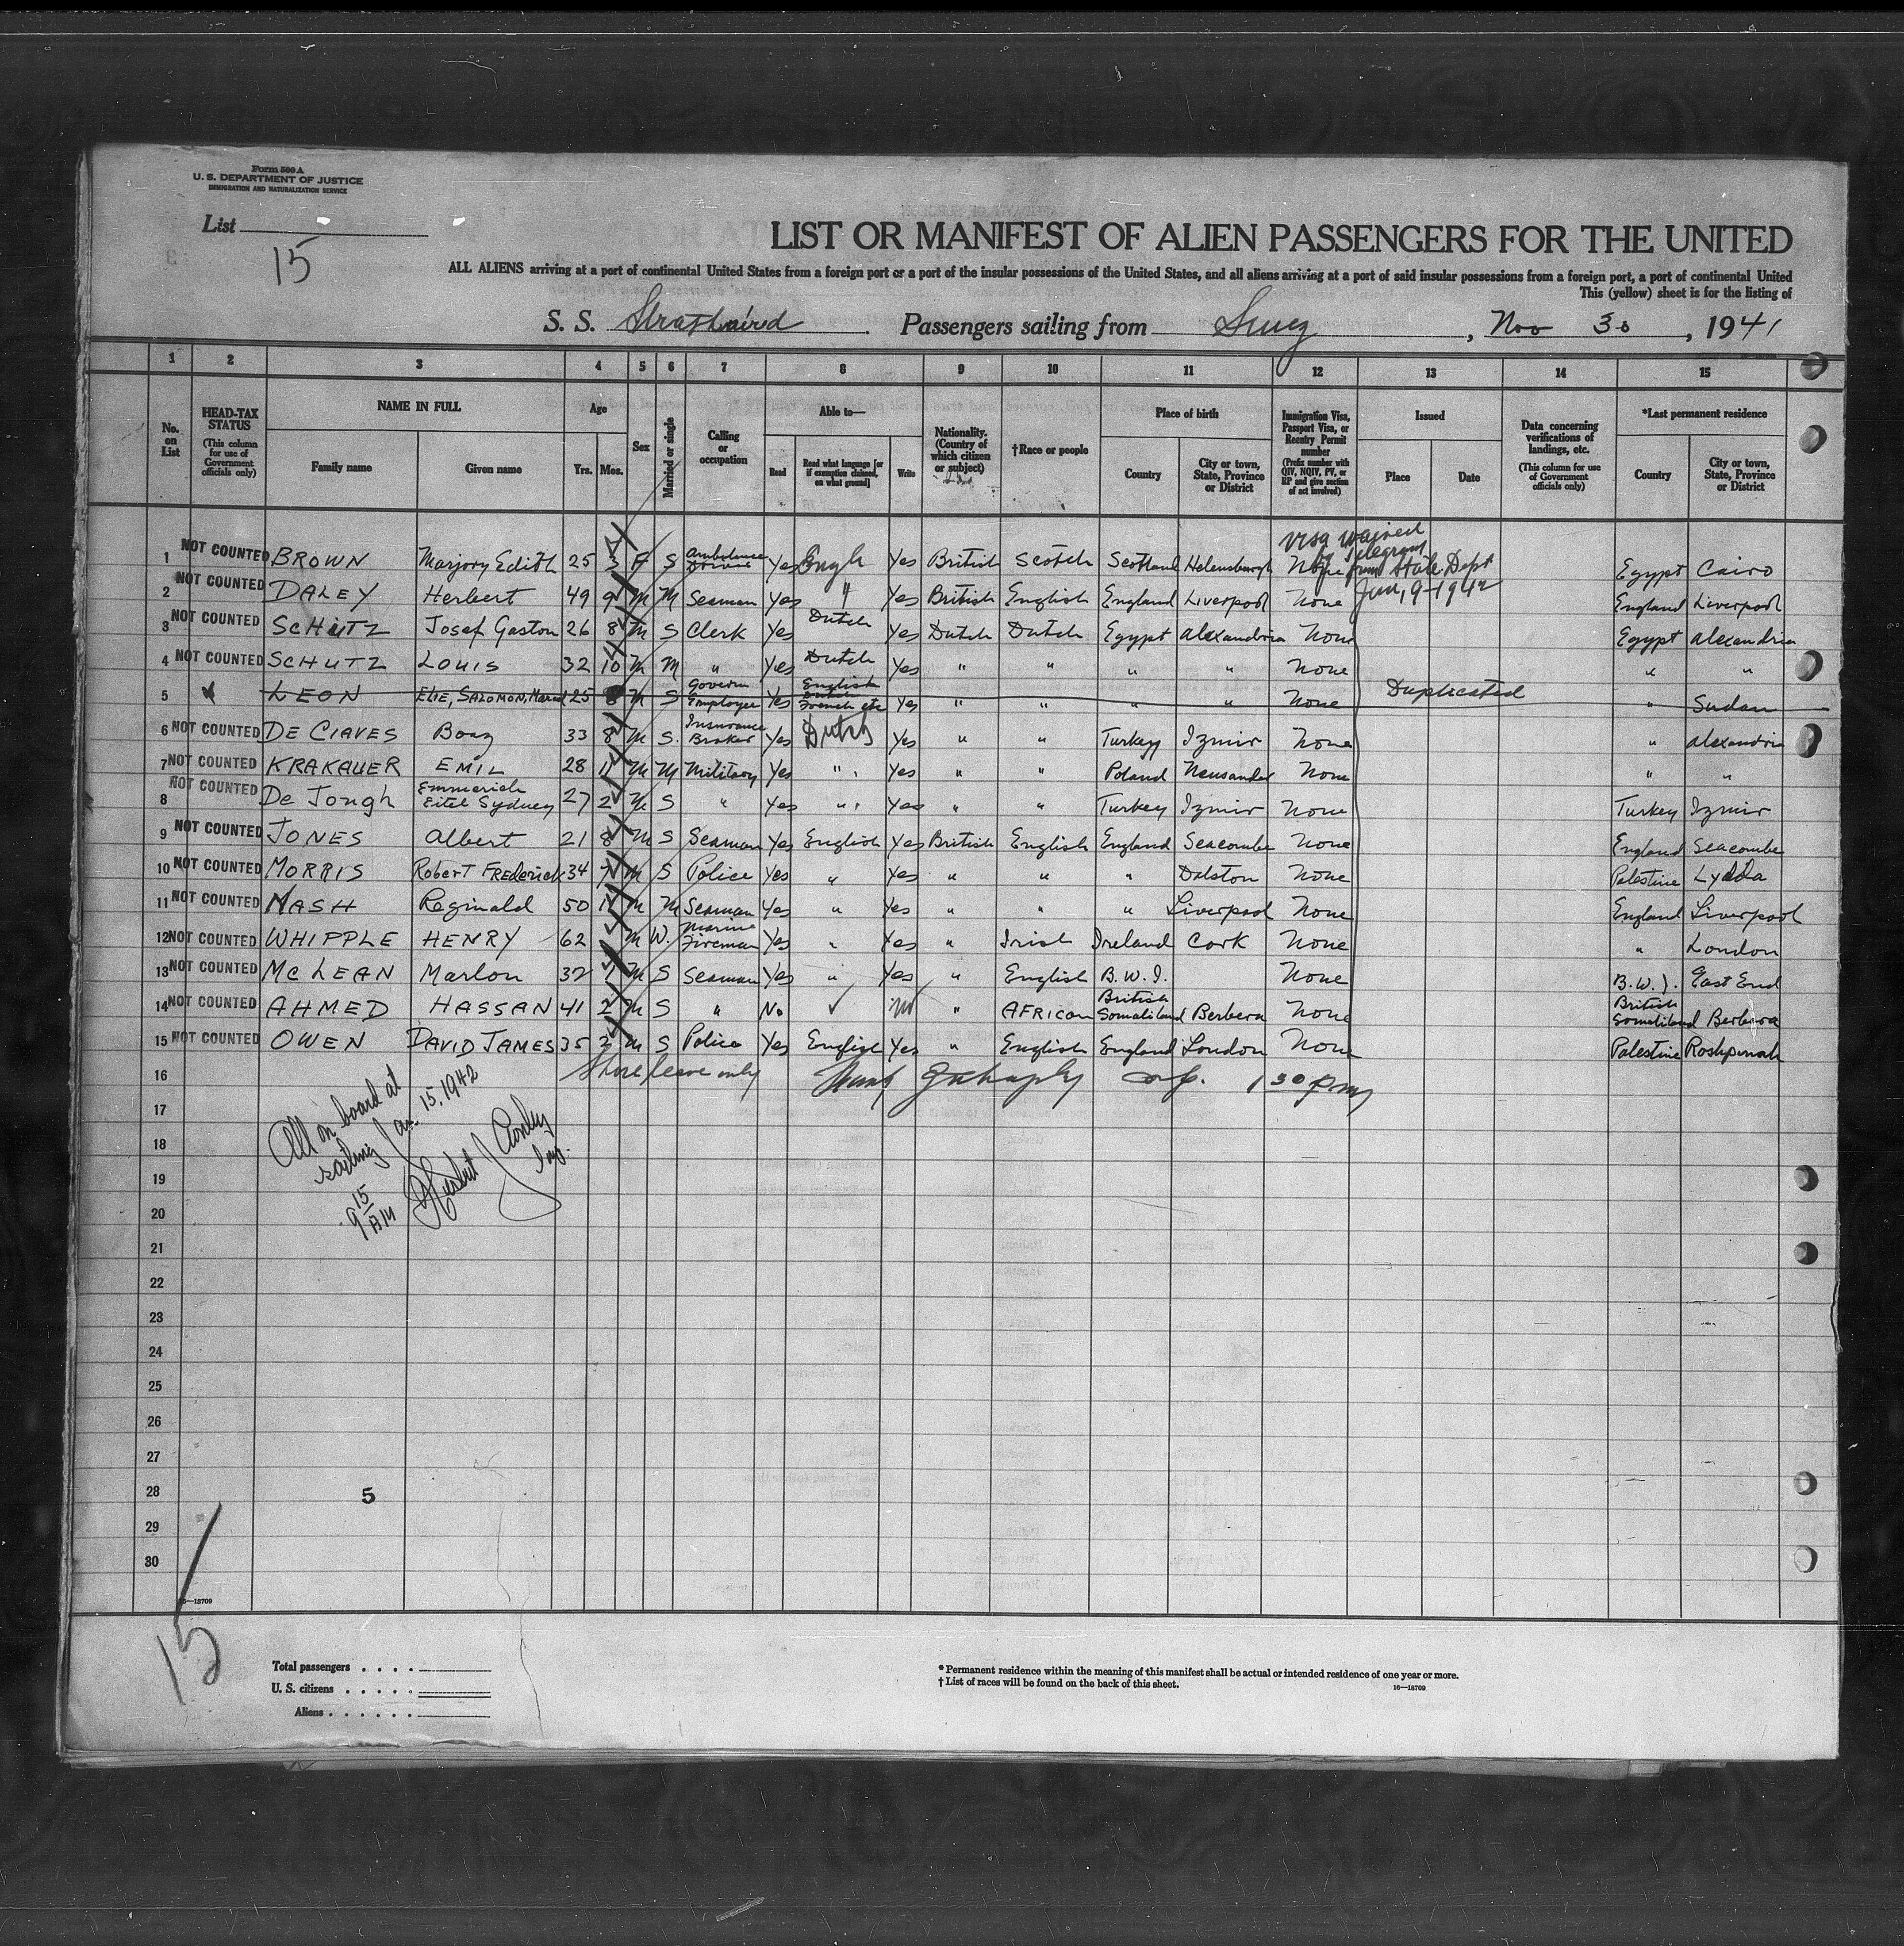 Form 500 A
U. S. DEPARTMENT OF JUSTICE
IMMIGRATION AND NATURALIZATION SERVICE
List 15
LIST OR MANIFEST OF ALIEN PASSENGERS FOR THE UNITED
ALL ALIENS arriving at a port of continental United States from a foreign port or a port of the insular possessions of the United States, and all aliens arriving at a port of said insular possessions from a foreign port, a port of continental United
This (yellow) sheet is for the listing of
S. S. Strathaird Passengers sailing from Suez, Nov 30, 1941
1 2 3 4 5 6 7 8 9 10 11 12 13 14 15
No. on List
HEAD-TAX STATUS (This column for use of Government officials only)
NAME IN FULL
Family name Given name
Age
Yrs. Mos.
Sex
Married or single
Calling or occupation
Able to—
Read Read what language [or if exemption claimed, on what ground] Write
Nationality. (Country of which citizen or subject)
†Race or people
Place of birth
Country City or town, State, Province or District
Immigration Visa, Passport Visa, or Reentry Permit number (Prefix number with QIV, NQIV, PV, or RP and give section of act involved)
Issued
Place Date
Data concerning verifications of landings, etc. (This column for use of Government officials only)
*Last permanent residence
Country City or town, State, Province or District
visa waived
by telegram
from State Dept
Jan, 9-1942
1 NOT COUNTED BROWN Marjory Edith 25 3 F S Ambulance Driver Yes Engl Yes British Scotch Scotland Helensburgh None Egypt Cairo
2 NOT COUNTED DALEY Herbert 49 9 M M Seaman Yes " Yes British English England Liverpool None England Liverpool
3 NOT COUNTED SCHUTZ Josef Gaston 26 8 M S Clerk Yes Dutch Yes Dutch Dutch Egypt Alexandria None Egypt Alexandria
4 NOT COUNTED SCHUTZ LOUIS 32 10 M M " Yes Dutch Yes " " " " None " "
5 LEON ELIE, SALOMON, 25 M S Govern Employee Yes English Dutch French etc Yes " " " " None Duplicated " Sudan
6 NOT COUNTED DE CIAVES Boaz 33 8 M S. Insurance Broker Yes Dutch Yes " " Turkey Izmir None " Alexandria
7 NOT COUNTED KRAKAUER EMIL 28 11 M M Military Yes " Yes " " Poland Neusander None " "
8 NOT COUNTED De Jongh Emmerich Eitel Sydney 27 2 M S " Yes " Yes " " Turkey Izmir None Turkey Izmir
9 NOT COUNTED JONES Albert 21 8 M S Seaman Yes English Yes British English England Seacombe None England Seacombe
10 NOT COUNTED MORRIS Robert FREDerick 34 7 M S Police Yes " Yes " " " Dalston None Palestine Lydda
11 NOT COUNTED NASH Reginald 50 1 M M Seaman Yes " Yes " " " Liverpool None England Liverpool
12 NOT COUNTED WHIPPLE HENRY 62 M W. Marine Fireman Yes " Yes " Irish Ireland Cork None " London
13 NOT COUNTED McLEAN Marlon 32 1 M S Seaman Yes " Yes " English B.W.I. None B.W.I. East End
14 NOT COUNTED AHMED HASSAN 41 2 M S " No No " AFRICAN British Somaliland Berbera None British Somaliland Berbera
15 NOT COUNTED OWEN DAVID JAMES 35 2 M S Police Yes English Yes " English England London None Palestine Roshpinah
16 Shore leave only 1 30 pm
17
18
19
20
21
22
23
24
25
26
27
28
29
30
All on board at
sailing Jan. 15, 1942
9 15 AM
Insp.
5
16—18709
15
Total passengers
U. S. citizens
Aliens
* Permanent residence within the meaning of this manifest shall be actual or intended residence of one year or more.
† List of races will be found on the back of this sheet.
16—18709